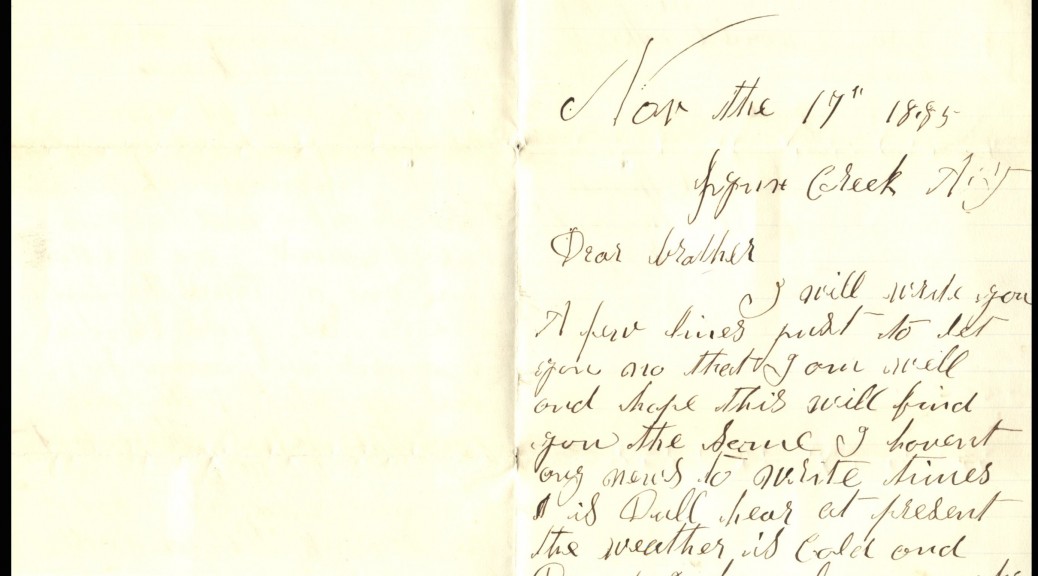 Nov the 17" 1885
Creek
Dear brother
I will write you
A few lines just to let
you no that I am well
and hope this will find
you the same I havent
any news to write times
is Dull hear at present
the weather is Cold and